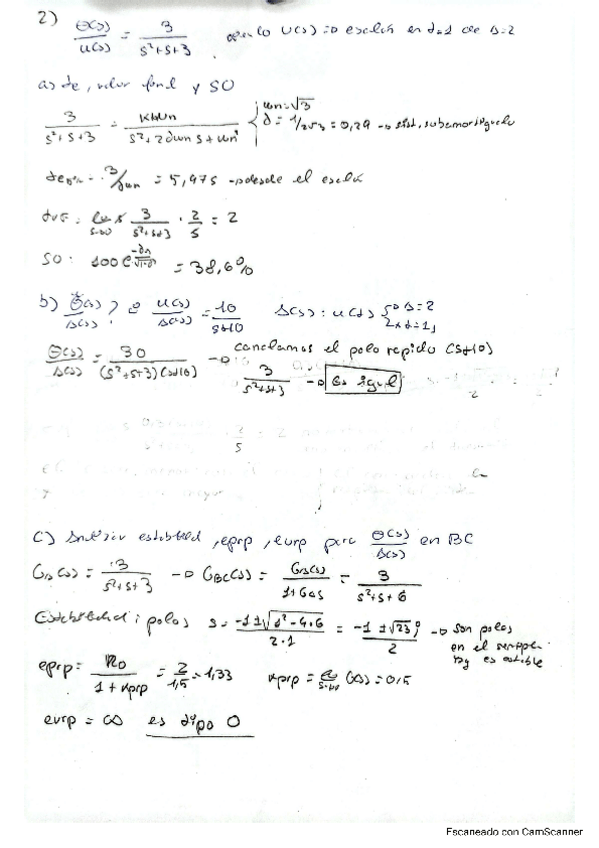 2) θ(s)/u(s) = 3/(s²+s+3) U(s) => escalón en t=1 de A=2
a) te, valor final y SO
3/(s²+s+3) = K·wn/(s²+2dwn s+wn²) { wn=√3
d = 1/2√3 = 0,29 -> sist. subamortiguado
= 3/dwn = 5,97s -> desde el escalón
3/(s²+s+3) · 2/s = 2
SO: 100e^(-dπ/√(1-d²)) = 38,6%
b) θ(s)/Δ(s)? u(s)/Δ(s) = 10/(s+10) Δ(s): u(s) { A=2
t=1s
θ(s)/Δ(s) = 30/((s²+s+3)(s+10)) -> cancelamos el polo rapido (s+10)
3/(s²+s+3) -> Es igual
c) estabilidad, eprp, evrp para θ(s)/Δ(s) en BC
G(s) = 3/(s²+s+3) -> GBC(s) = G(s)/(1+G(s)) = 3/(s²+s+6)
Estabilidad: polos s = (-1±√(1²-4·6))/(2·1) = (-1±√23 j)/2 -> son polos
en el semipl.
es estable
eprp = R0/(1+Kprp) = 2/1,5 = 1,33 Kprp = G(s) = 0,5
evrp = ∞ es tipo 0
Escaneado con CamScanner